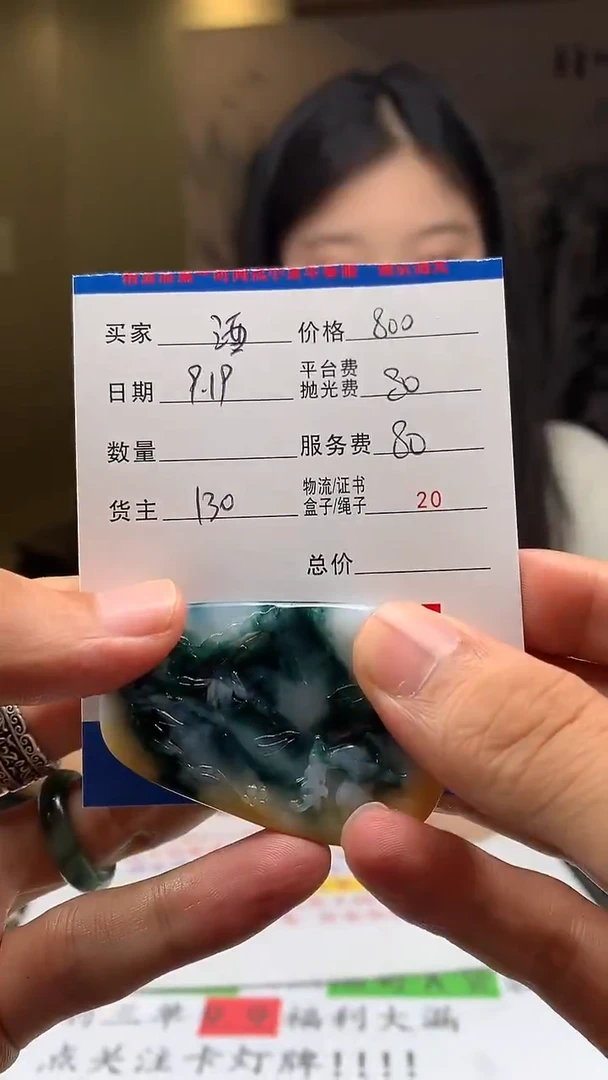 买家 酒 价格 800
日期 9.19 平台费 抛光费 80
数量 服务费 80
货主 130 物流/证书 盒子/绳子 20
总价
三单99福利大漏
点关注卡灯牌!!!!